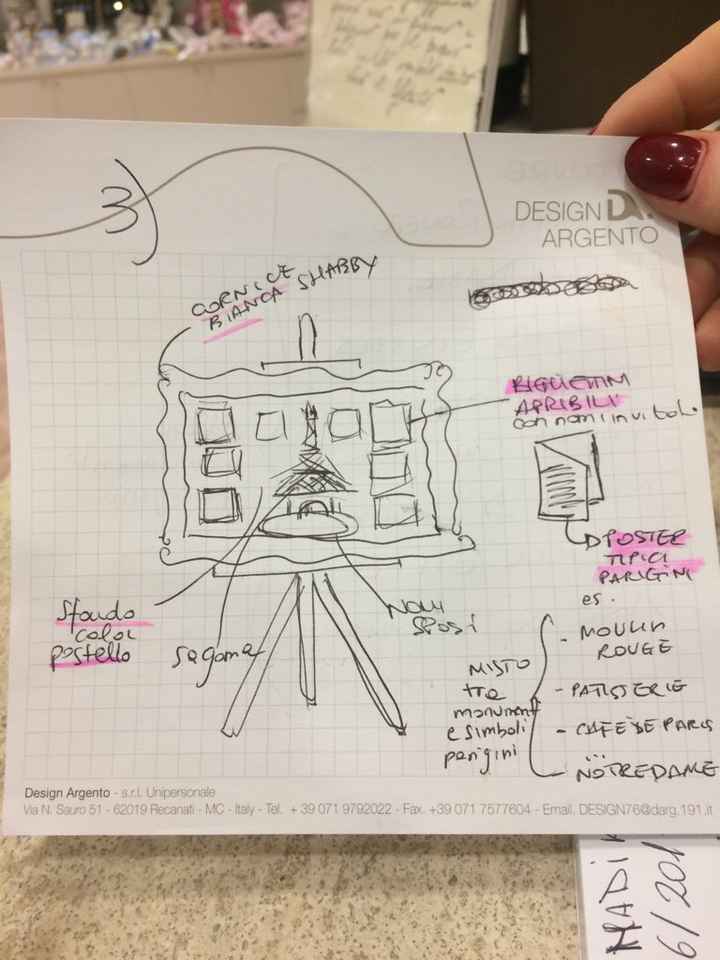 3)
DESIGN DA.
ARGENTO
CORNICE
BIANCA SHABBY
BIGLIETTINI
APRIBILI
con nomi invitati
POSTER
TIPICI
PARIGINI
es.
- MOULIN
ROUGE
- PATISSERIE
- CAFE DE PARIS
...
NOTREDAME
MISTO
tra
monumenti
e simboli
parigini
NOMI
SPOSI
sagoma
Sfondo
color
pastello
Design Argento - s.r.l. Unipersonale
Via N. Sauro 51 - 62019 Recanati - MC - Italy - Tel. + 39 071 9792022 - Fax. +39 071 7577604 - Email. DESIGN76@darg.191.it